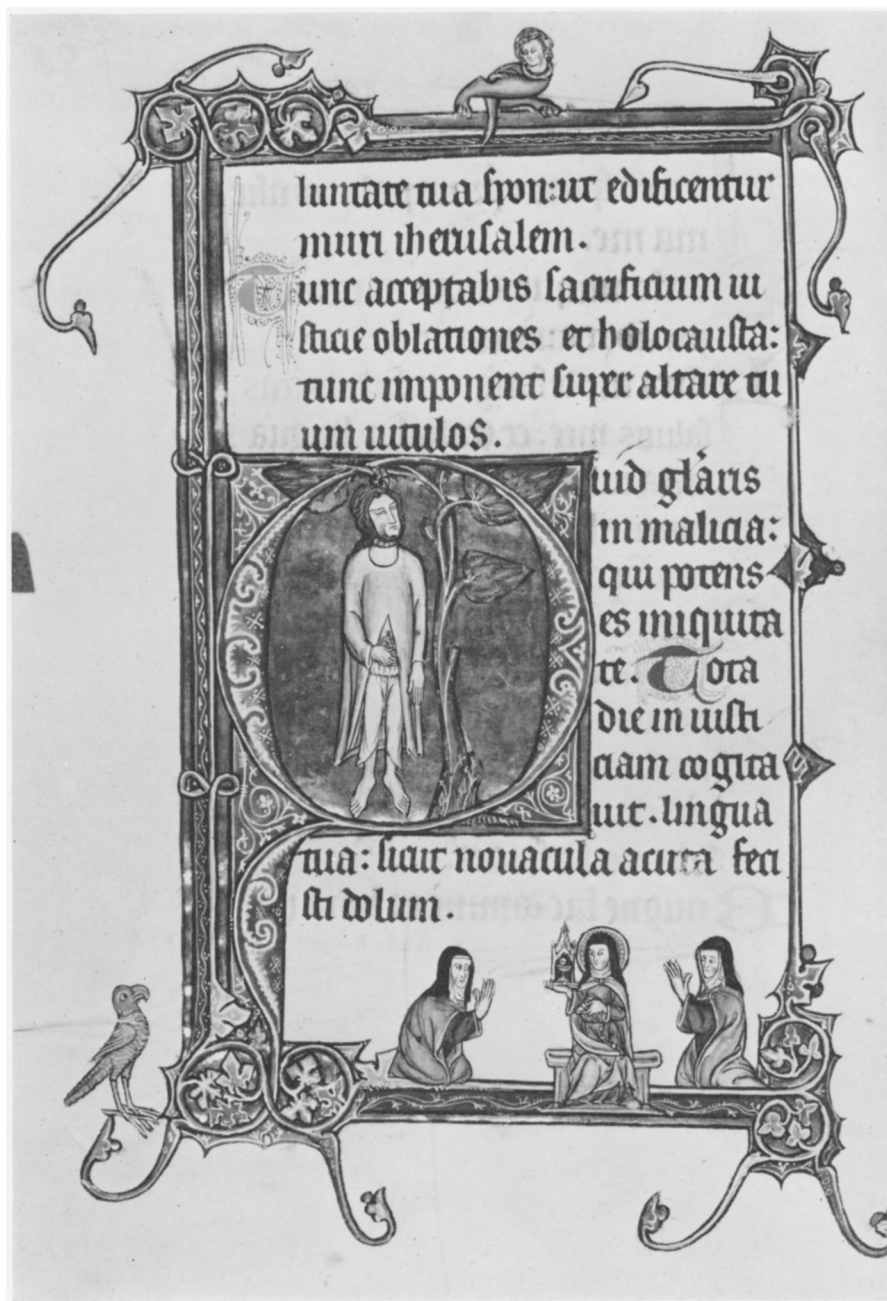 luntate tua syon: ut edificentur
muri iherusalem.
Tunc acceptabis sacrificium iu
sticie oblationes et holocausta:
tunc imponent super altare tu
um uitulos.
Quid glaris
in malicia:
qui potens
es iniquita
te. Tota
die in iusti
ciam cogita
uit. lingua
tua: sicut nouacula acuta feci
sti dolum.